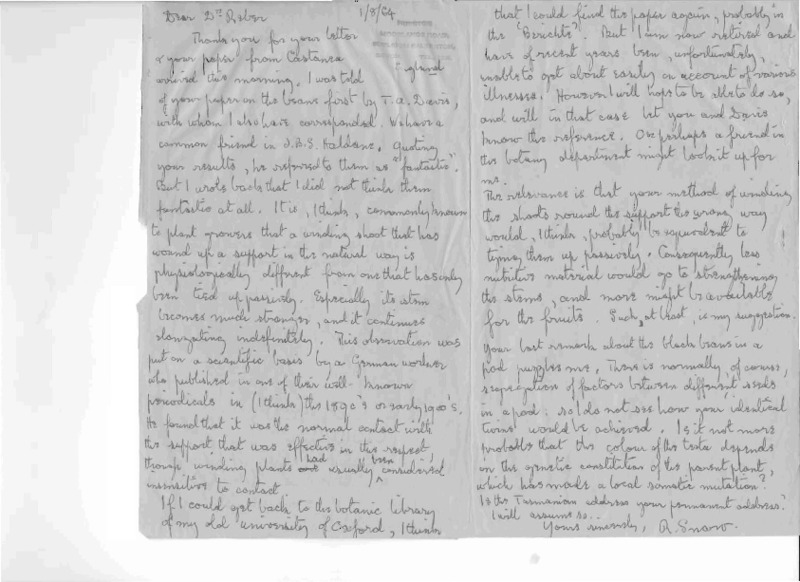 1/9/64
Dear Dr. Reber
Thank you for your letter
& your paper from Castanea
arrived this morning. I was told
of your paper on the beans first by T.A. Davis,
with whom I also have corresponded. We have a
common friend in J.B.S. Haldane. Quoting
your results, he referred to them as "fantastic".
But I wrote back that I did not think them
fantastic at all. It is, I think, commonly known
to plant growers that a winding shoot that has
wound up a support in the natural way is
physiologically different from one that has only
been tied up passively. Especially its stem
becomes much stronger, and it continues
elongating indefinitely. This observation was
put on a scientific basis by a German worker
who published in one of their well-known
periodicals in (I think) the 1890's or early 1900's.
He found that it was the normal contact with
the support that was effective in this respect,
though winding plants had usually been considered
insensitive to contact.
If I could get back to the botanic library
of my old university of Oxford, I think
that I could find the paper again, probably in
the "Berichte". But I am now retired and
have of recent years been, unfortunately,
unable to get about easily on account of various
illnesses. However I will hope to be able to do so,
and will in that case let you and Davis
know the reference. Or perhaps a friend in
the botany department might look it up for
me.
The relevance is that your method of winding
the shoots round the support the wrong way
would, I think, probably be equivalent to
tying them up passively. Consequently less
nutritive material would go to strengthening
the stems, and more might be available
for the fruits. Such, at least, is my suggestion.
Your last remark about the black beans in a
pod puzzles me. There is normally, of course,
segregation of factors between different seeds
in a pod: so I do not see how your 'identical
twins' would be achieved. Is it not more
probable that the colour of the testa depends
on the genetic constitution of the parent plant,
which has made a local somatic mutation?
Is the Tasmanian address your permanent address?
I will assume so.
Yours sincerely, R. Snow.